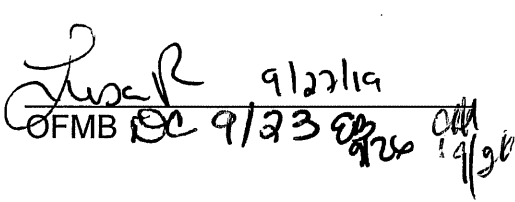 Lisa R 9/27/19
OFMB DC 9/23 EB 9/26